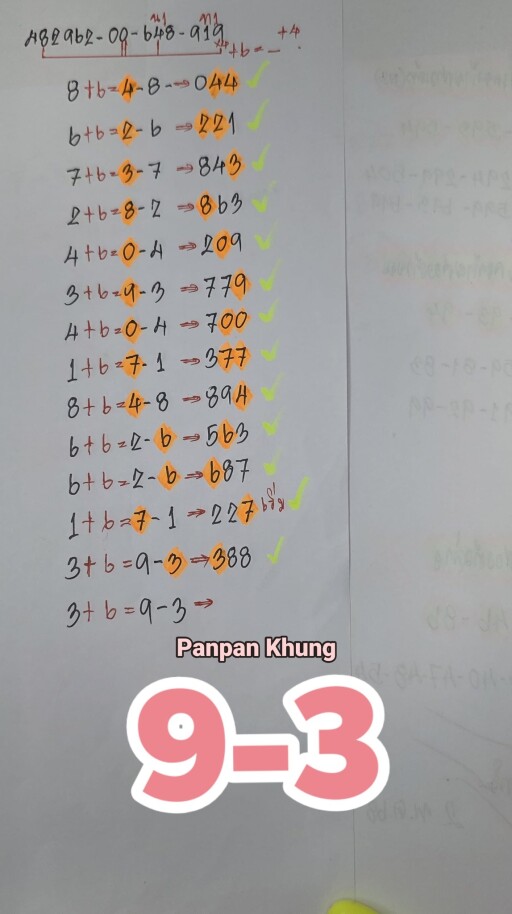 482962-00-648-919
+6=_ +4.
8+6=4-8-→044
6+6=2-6→221
7+6=3-7→843
2+6=8-2→863
4+6=0-4→209
3+6=9-3→779
4+6=0-4→700
1+6=7-1→377
8+6=4-8→894
6+6=2-6→563
6+6=2-6→687
1+6=7-1→227
3+6=9-3→388
3+6=9-3→
Panpan Khung
9-3